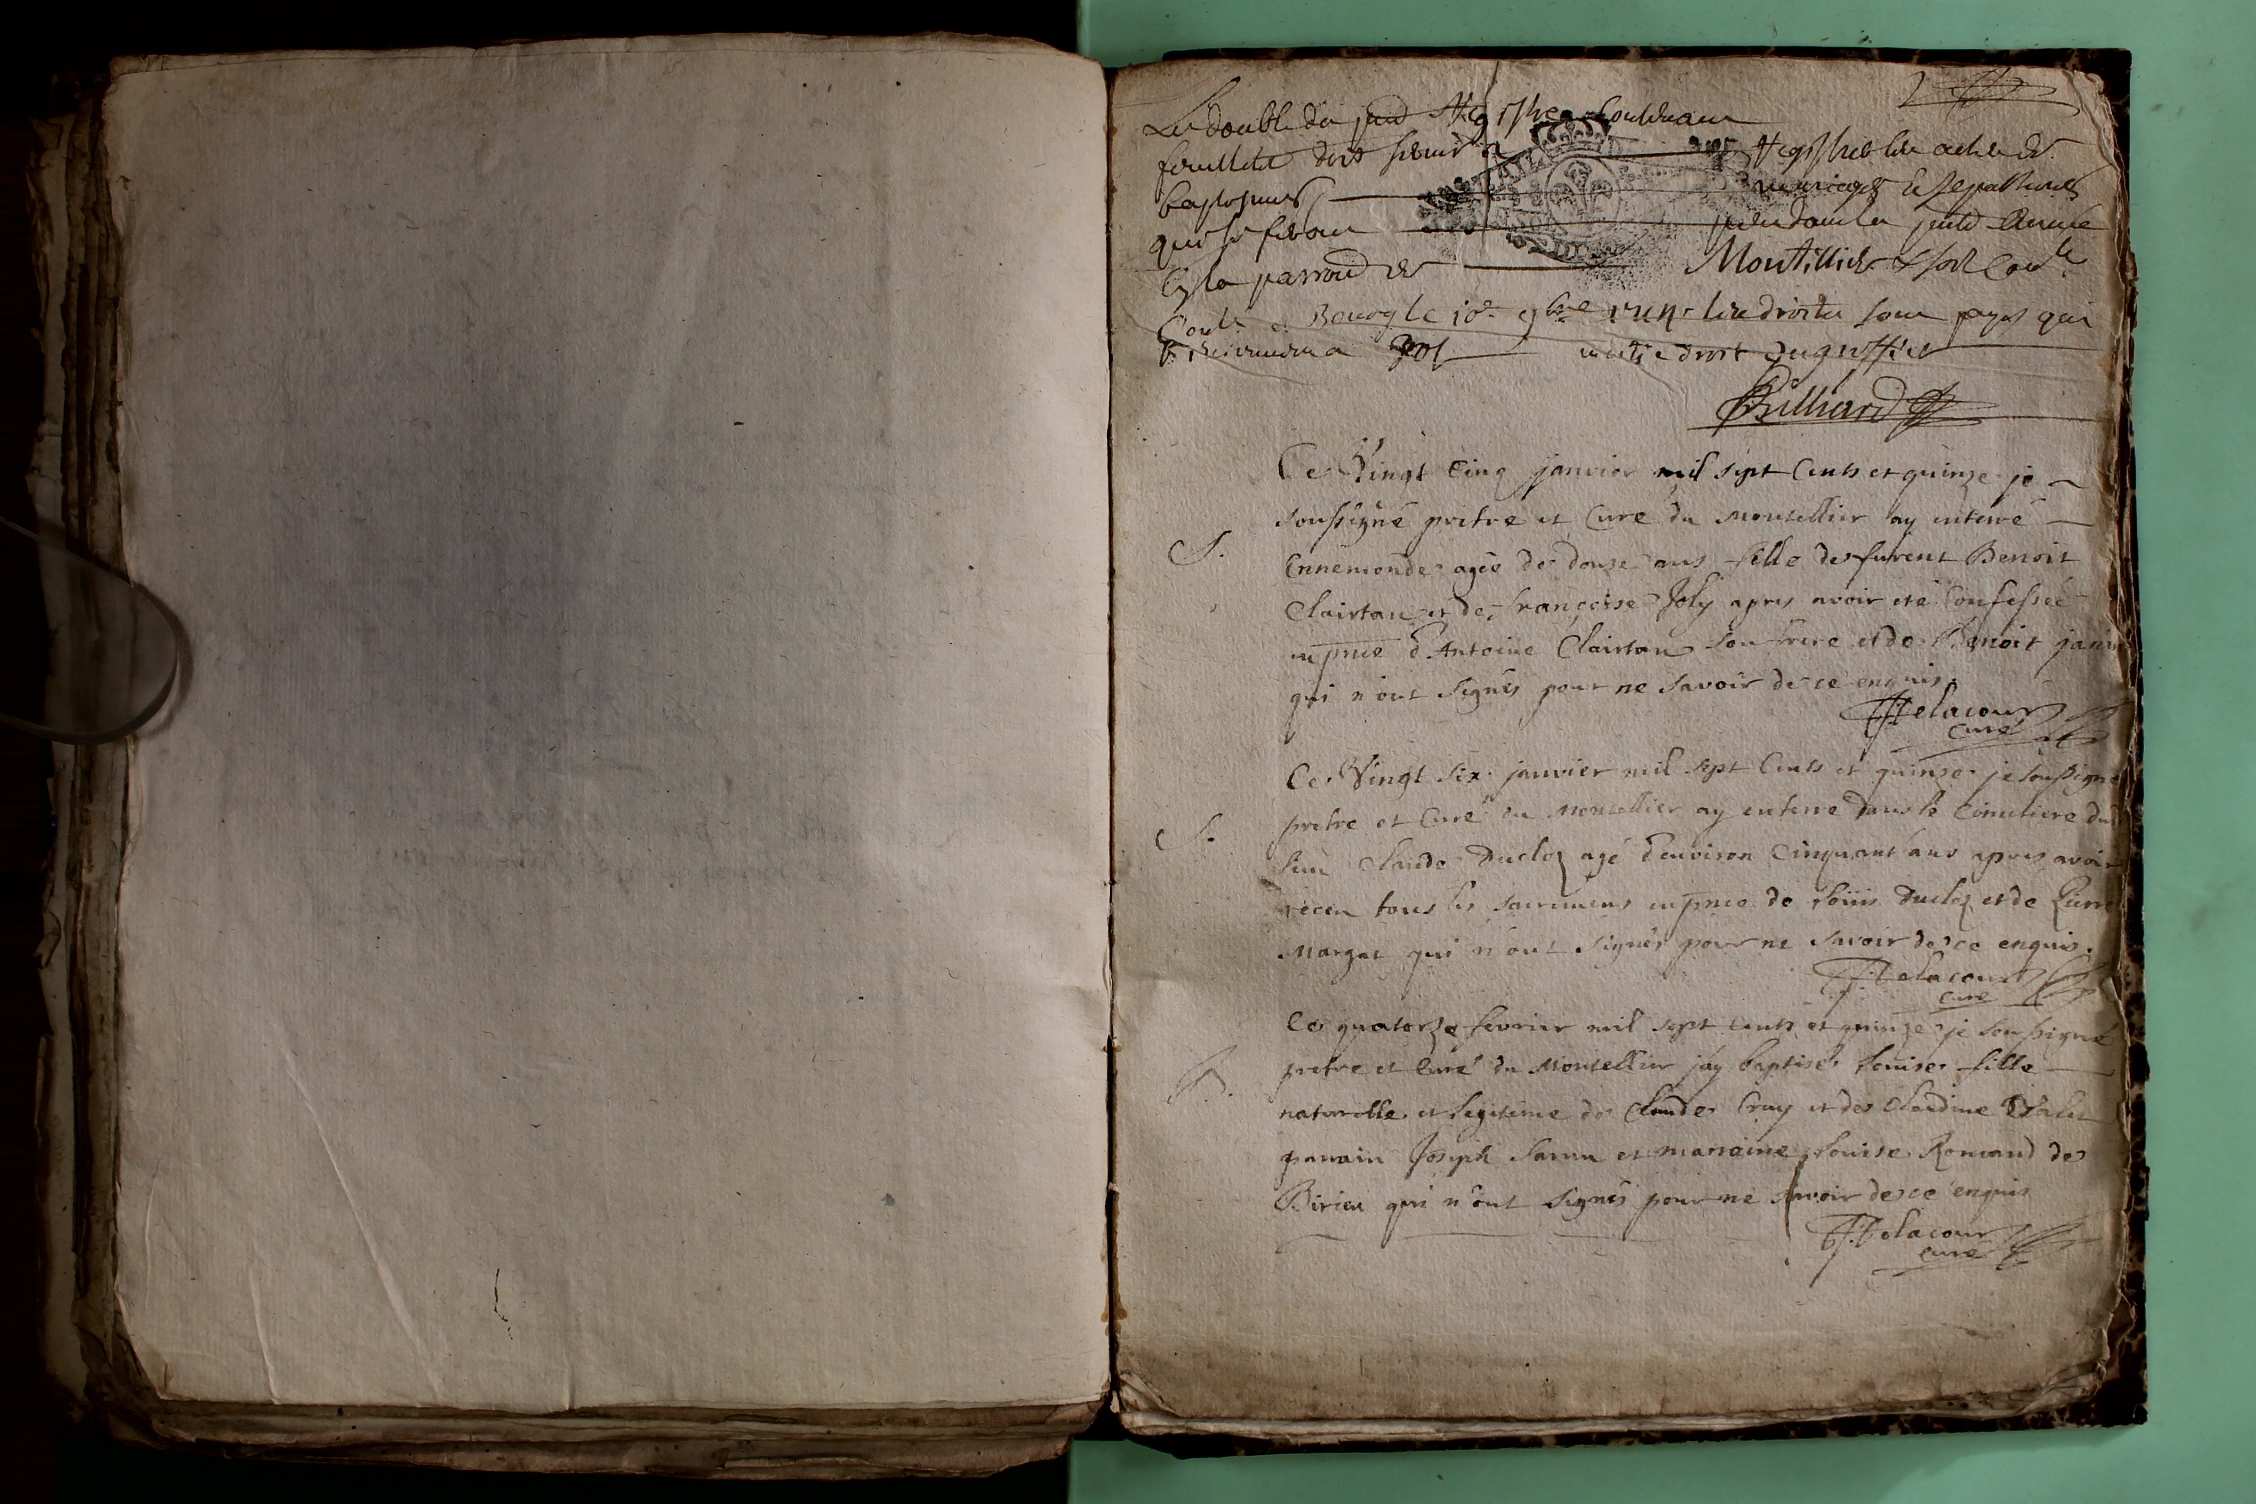 Le double du pnt Registre contenant
feuillet doit servir a Registrer les actes de
baptesmes mariages & sepultures
qui se feront pendant la pnte année
En la parroisse de Montillier
Bourg le 10e 9bre les droits sont payes qui
moitie droit du greffier
Billiard
Ce Vingt Cinq janvier mil sept Cents et quinze je
soussigné pretre et Curé du montellier ay enterré
S.
Ennemonde agée de douze ans fille de furent Benoit
Clairtan et de françoise Joly apres avoir eté Confessée
en pnce d'Antoine Clairtan son frere et de Benoit janin
qui n'ont signés pour ne savoir de ce enquis.
Delacour
curé
Ce Vingt six janvier mil sept Cents et quinze je soussigné
pretre et Curé du montellier ay enterré dans le Cimetiere dud
S.
lieu Claude Ducloz agé d'environ Cinquant ans apres avoir
receu tous les sacremens en pnce de Louis Ducloz et de Pierre
Margat qui n'ont signés pour ne savoir de ce enquis.
Delacour
curé
Ce quatorze fevrier mil sept cents et quinze je soussigné
pretre et Curé du Montellier jay baptisé Louise fille
B.
naturelle et legitime de Claude Cruy et de Claudine
parrain Joseph et marraine Louise Romand de
Birieu qui n'ont signés pour ne savoir de ce enquis
Delacour
curé